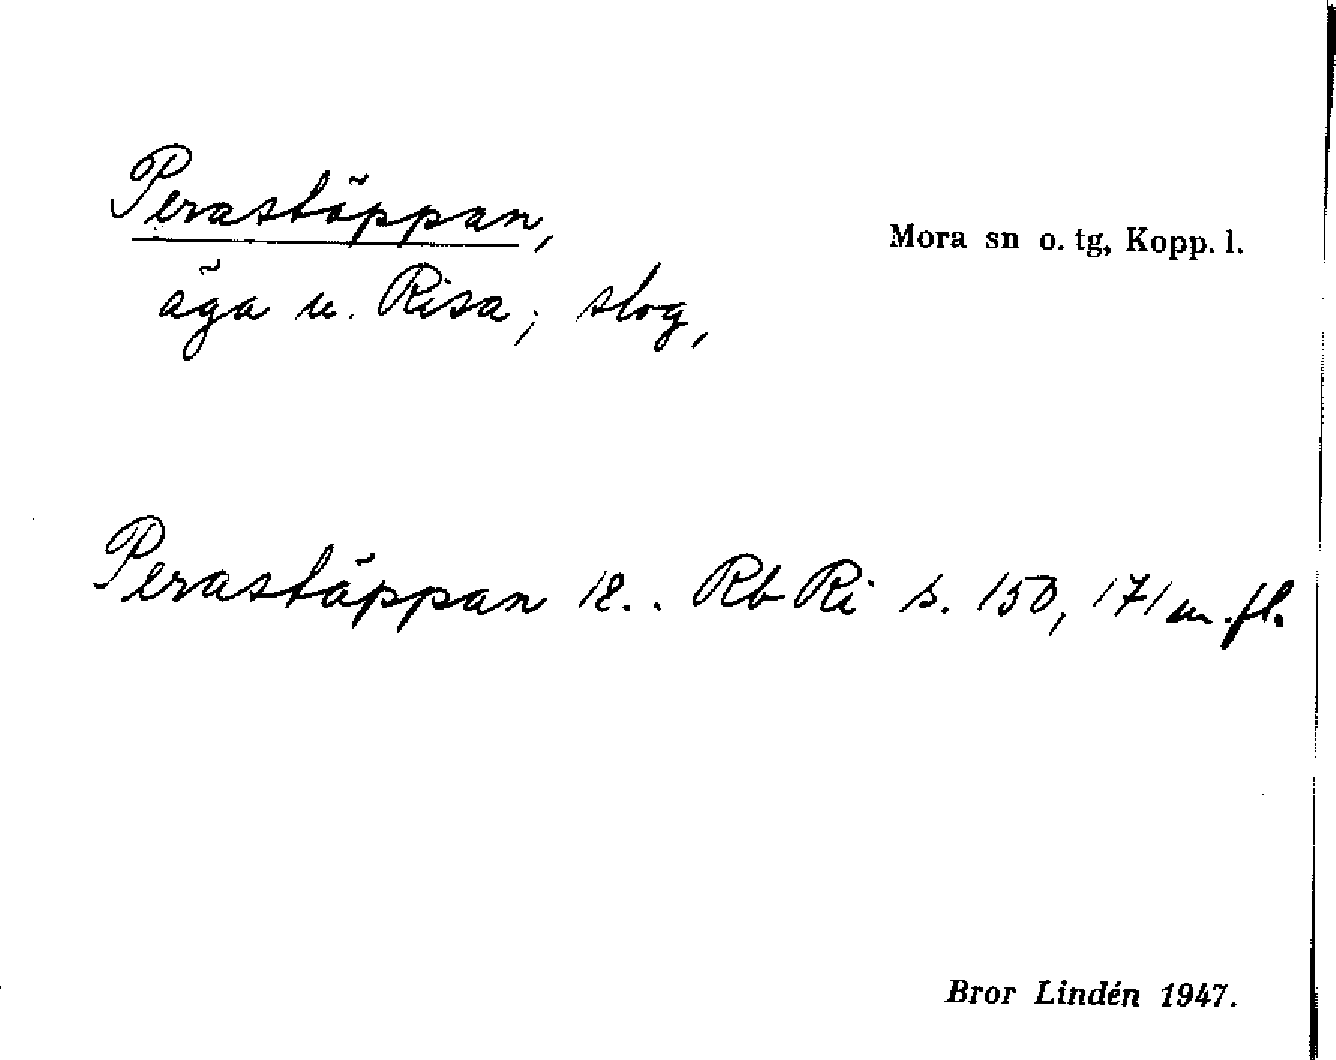 Perastäppan,
Mora sn o. tg, Kopp. l.
äga u. Risa; slog,
Perastäppan 12.. Rb Ri s. 150, 171 m.fl.
Bror Lindén 1947.